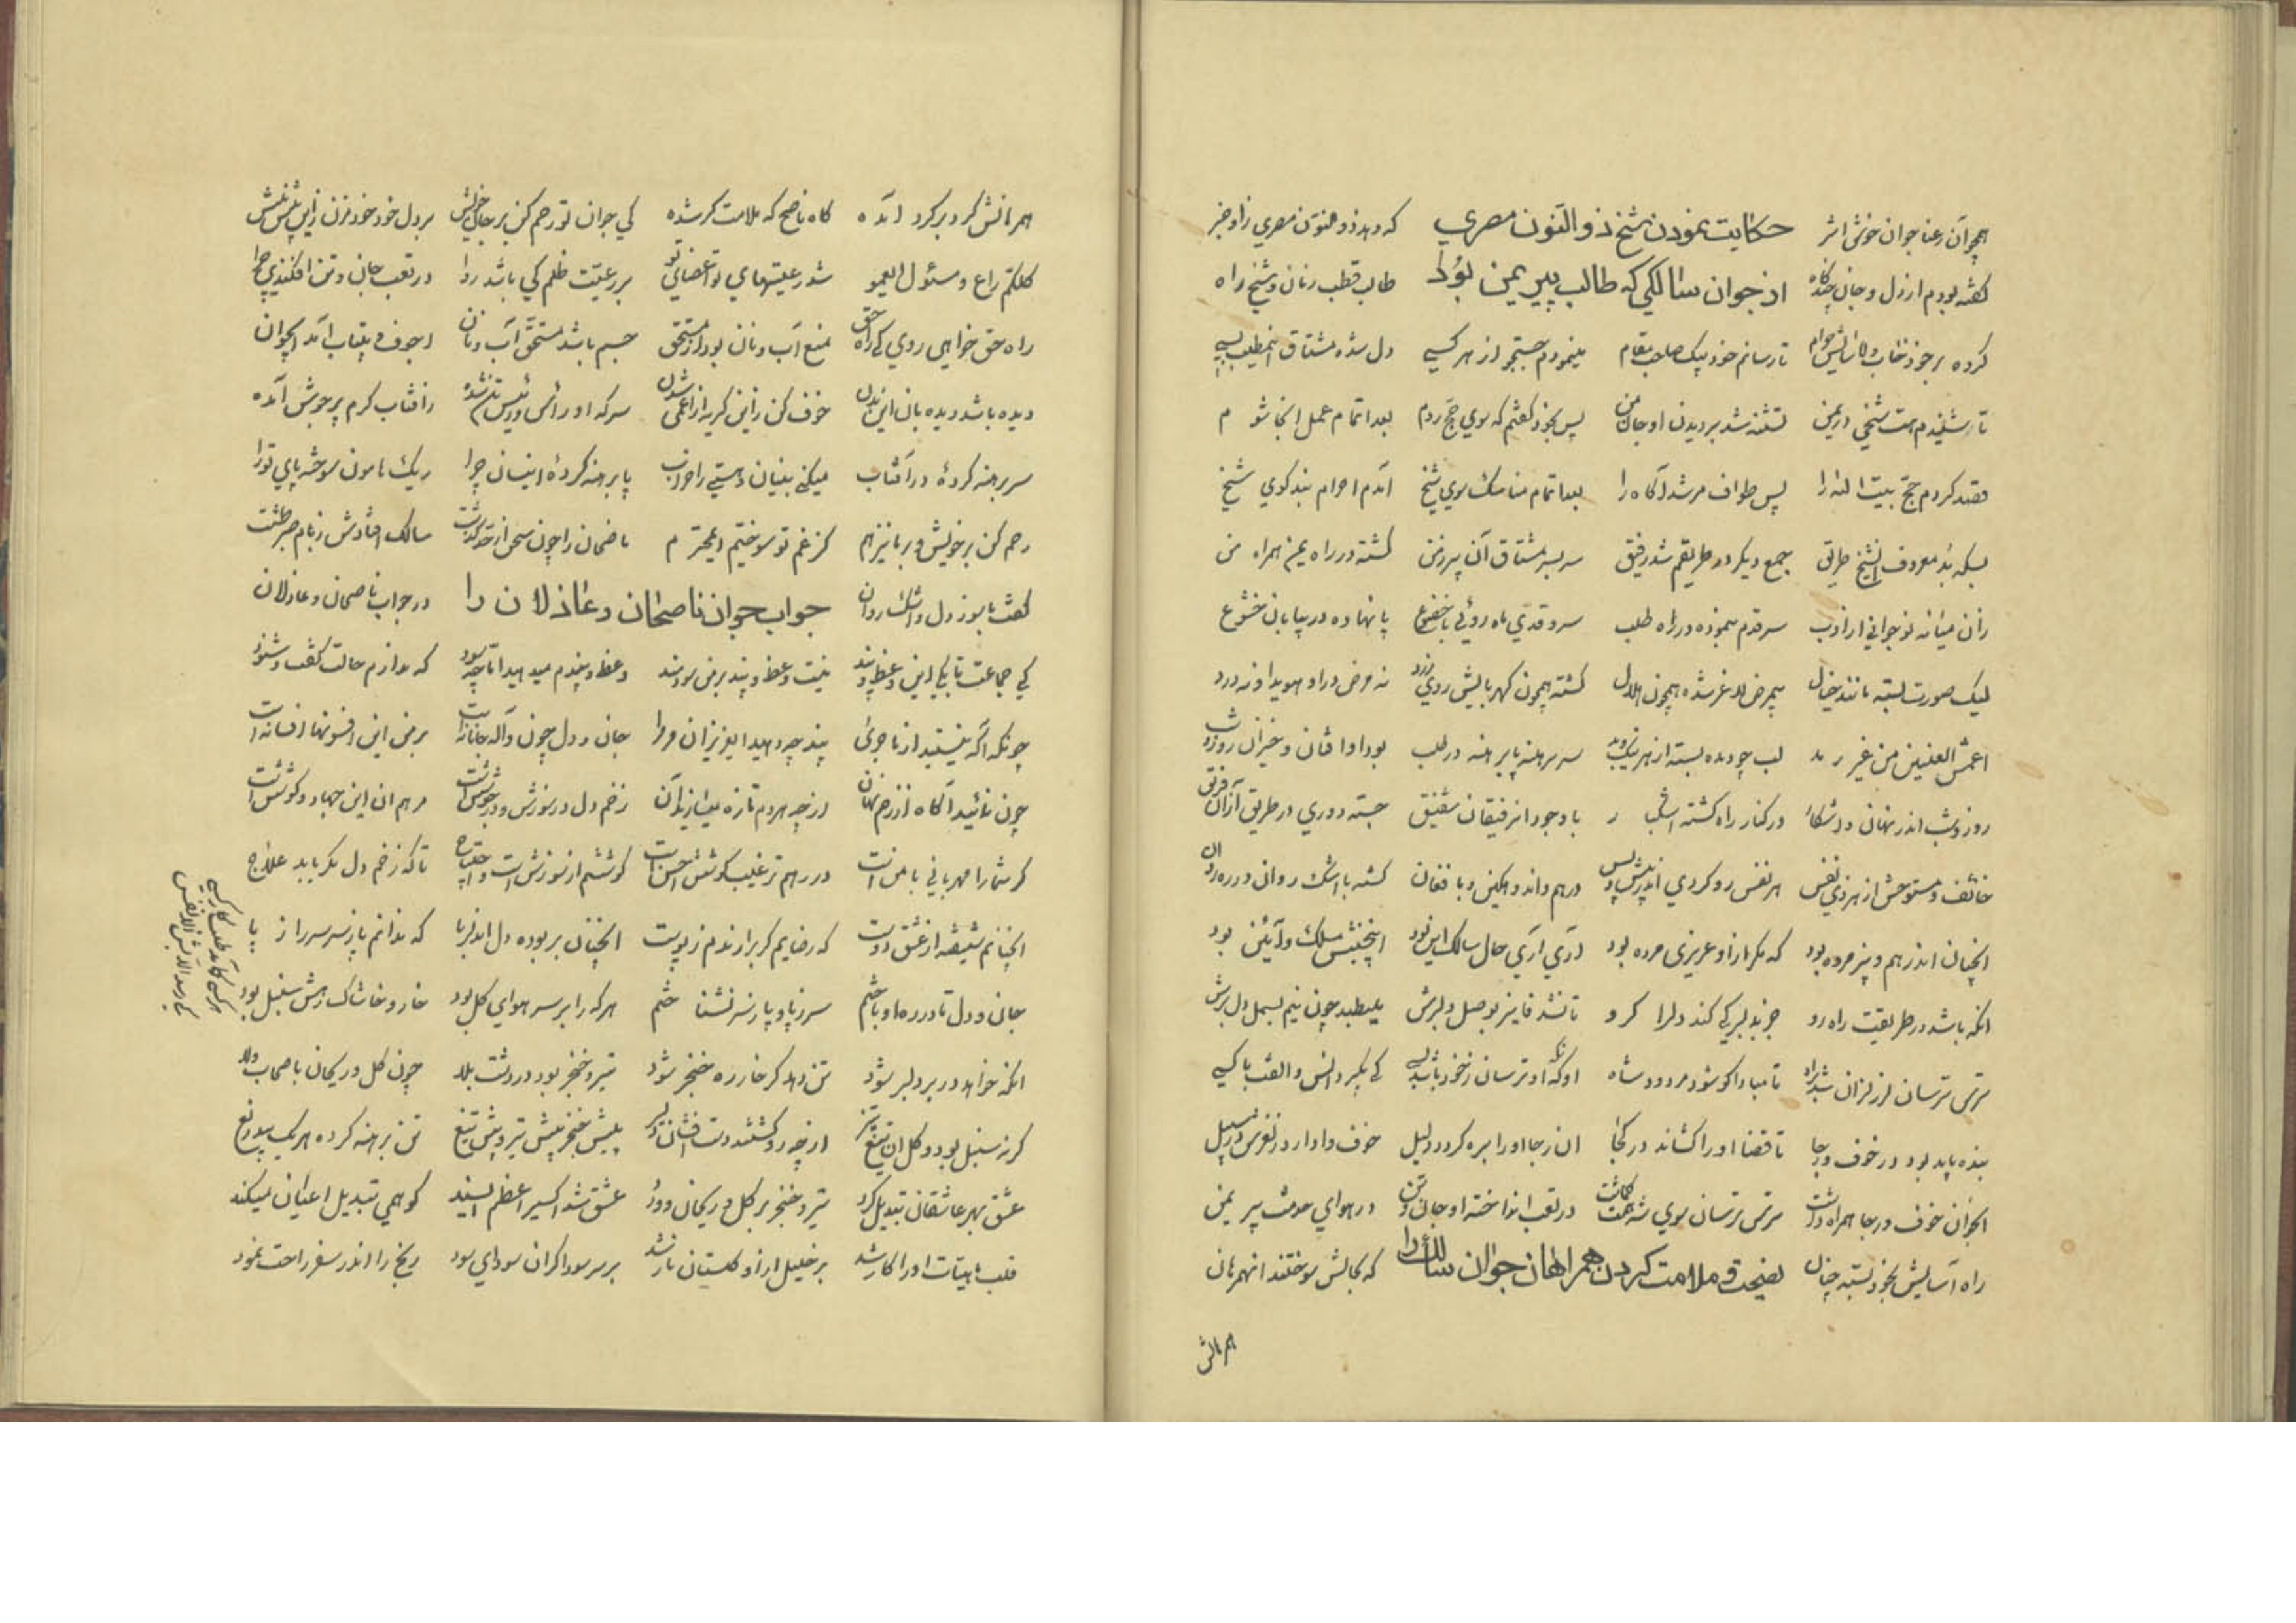 همچو آن رعنا جوان خوش اثر حکایت نمودن شیخ ذوالنون مصری که دهد ذوالنون مصری زاو خبر
گفته بودم از دل و جان چندگاه از جوان سالکی که طالب پیر یمن بود طالب قطب زمان و شیخ راه
کرده بر خود خواب و آسایش حرام تا رسانم خود بیک صاحب مقام مینمودم جستجو از هر کسی دل شده مشتاق این مطلب بسی
تا شنیدم هست شیخی در یمن تشنه شد بر دیدن او جان من پس بخود گفتم که سوی حج روم بعد اتمام عمل آنجا شوم
قصد کردم حج بیت الله را پس طواف مرشد آگاه را بعد اتمام مناسک سوی شیخ آمدم احرام بند کوی شیخ
بسکه بد معروف آن شیخ طریق جمع دیگر در طریقم شد رفیق سر بسر مشتاق آن پیر زمن گشته در راه یمن همراه من
زان میانه نوجوانی از ادب سر قدم بنموده در راه طلب سرو قدی ماه رویی با خضوع پا نهاده در بیابان خشوع
لیک صورت بسته مانند خیال بیمرض لاغر شده همچون هلال گشته همچون کهربایش روی زرد نه مرض در او هویدا و نه درد
اعمش العینین من غیر رمد لب چو دیده بسته از هر نیک و بد سر برهنه پا برهنه در طلب بود او افتان و خیزان روز و شب
روز و شب اندر نهان و آشکار در کنار راه گشته اشکبار با وجود آن رفیقان شفیق جسته دوری در طریق از آن فریق
خائف و مستوحش از هر ذی نفس هر نفس رو کردی اندر پیش و پس درهم و اندوهگین و با فغان گشته با اشک روان در ره روان
آنچنان اندر هم و پژمرده بود که مگر از او عزیزی مرده بود آری آری حال سالک این بود اینچنینش مسلک و آئین بود
آنکه باشد در طریقت راه رو جز بدلبر کی کند دل را گرو تا نشد فایز بوصل دلبرش میطپد چون نیم بسمل دل برش
ترس ترسان لرز لرزان شد براه تا مبادا کو شود مردود شاه آنکه او ترسان ز خود باشد بسی کی بگیرد انس و الفت با کسی
بنده باید بود در خوف و رجا تا قضا او را کشاند در کجا آن رجا او را بره کرده دلیل خوف وادارد ز لغزش در سبیل
آنجوان خوف و رجا همراه داشت ترس ترسان سوی شه همت گماشت در تعب انداخته او جان و تن در هوای خدمت پیر یمن
راه آسایش بخود بسته چنان نصیحت و ملامت کردن همراهان جوان سالک را که بحالش سوختند آن همرهان
همرهانش
همرهانش گرد بر گرد آمده گاه ناصح گه ملامتگر شده کی جوان تو رحم کن بر جان خویش بر دل خود خود مزن زین بیش نیش
کلکم راع و مسئول ای عمو شد رعیتهای تو اعضای تو بر رعیت ظلم کی باشد روا در تعب جان و تن افکندی چرا
راه حق خواهی روی کی راه حق منع آب و نان بود از مستحق جسم باشد مستحق آب و نان اجوف و بیتاب آمد ای جوان
دیده باشد دیده بان این بدن خوف کن زین گریه از اعمی شدن سر که او رأس و رئیس تن شده ز آفتاب گرم پر جوش آمده
سر برهنه کردهٔ در آفتاب میکنی بنیان هستی را خراب پا برهنه کردهٔ اینسان چرا ریگ هامون سوخته پای تو را
رحم کن بر خویش و بر ما نیز هم کز غم تو سوختیم ای محترم ناصحان را چون سخن از حد گذشت سالک افتادش ز بام صبر طشت
گفت با سوز دل و اشک روان جواب جوان ناصحان و عاذلان را در جواب ناصحان و عاذلان
کی جماعت تا بکی این وعظ و پند نیست وعظ و پند بر من سودمند وعظ و پندم میدهید اما چه سود که ندارم حالت گفت و شنود
چونکه آگه نیستید از ماجرا پند چه دهید ای عزیزان مر مرا جان و دل چون واله جانانه است بر من این افسونها افسانه است
چون نئید آگاه از زخم نهان از چه مرهم تازه میسازید از آن زخم دل در سوزش و در جوشش است مرهم آن این جهاد و کوشش است
گر شما را مهربانی با منست در رهم ترغیب کوشش احسن است کوششم از سوزش است و احتیاج تا که زخم دل مگر یابد علاج
آنچنانم شیفته از عشق دوست که رضایم گر برآرندم ز پوست آنچنان بربوده دل آن دلربا که ندانم پا ز سر سر را ز پا
جان و دل تا در ره او باختم سر ز پا و پا ز سر نشناختم هر که را بر سر هوای گل بود خار و خاشاک رهش سنبل بود
آنکه خواهد در بر دلبر شود تن دهد گر خار ره خنجر شود تیر و خنجر بود در دشت بلا چون گل و ریحان باصحاب ولا
گر نه سنبل بود و گل آن تیغ تیز از چه رو گشتند دست افشان دلیر پیش خنجر پیش تیر و پیش تیغ تن برهنه کرده هر یک بیدریغ
عشق بهر عاشقان تبدیل کرد تیر و خنجر بر گل و ریحان و ورد عشق شد اکسیر اعظم ای سند کو همی تبدیل اعیان میکند
قلب ماهیات او را کار شد بر خلیل از او گلستان نار شد بر سر سوداگران سودای سود رنج را اندر سفر راحت نمود